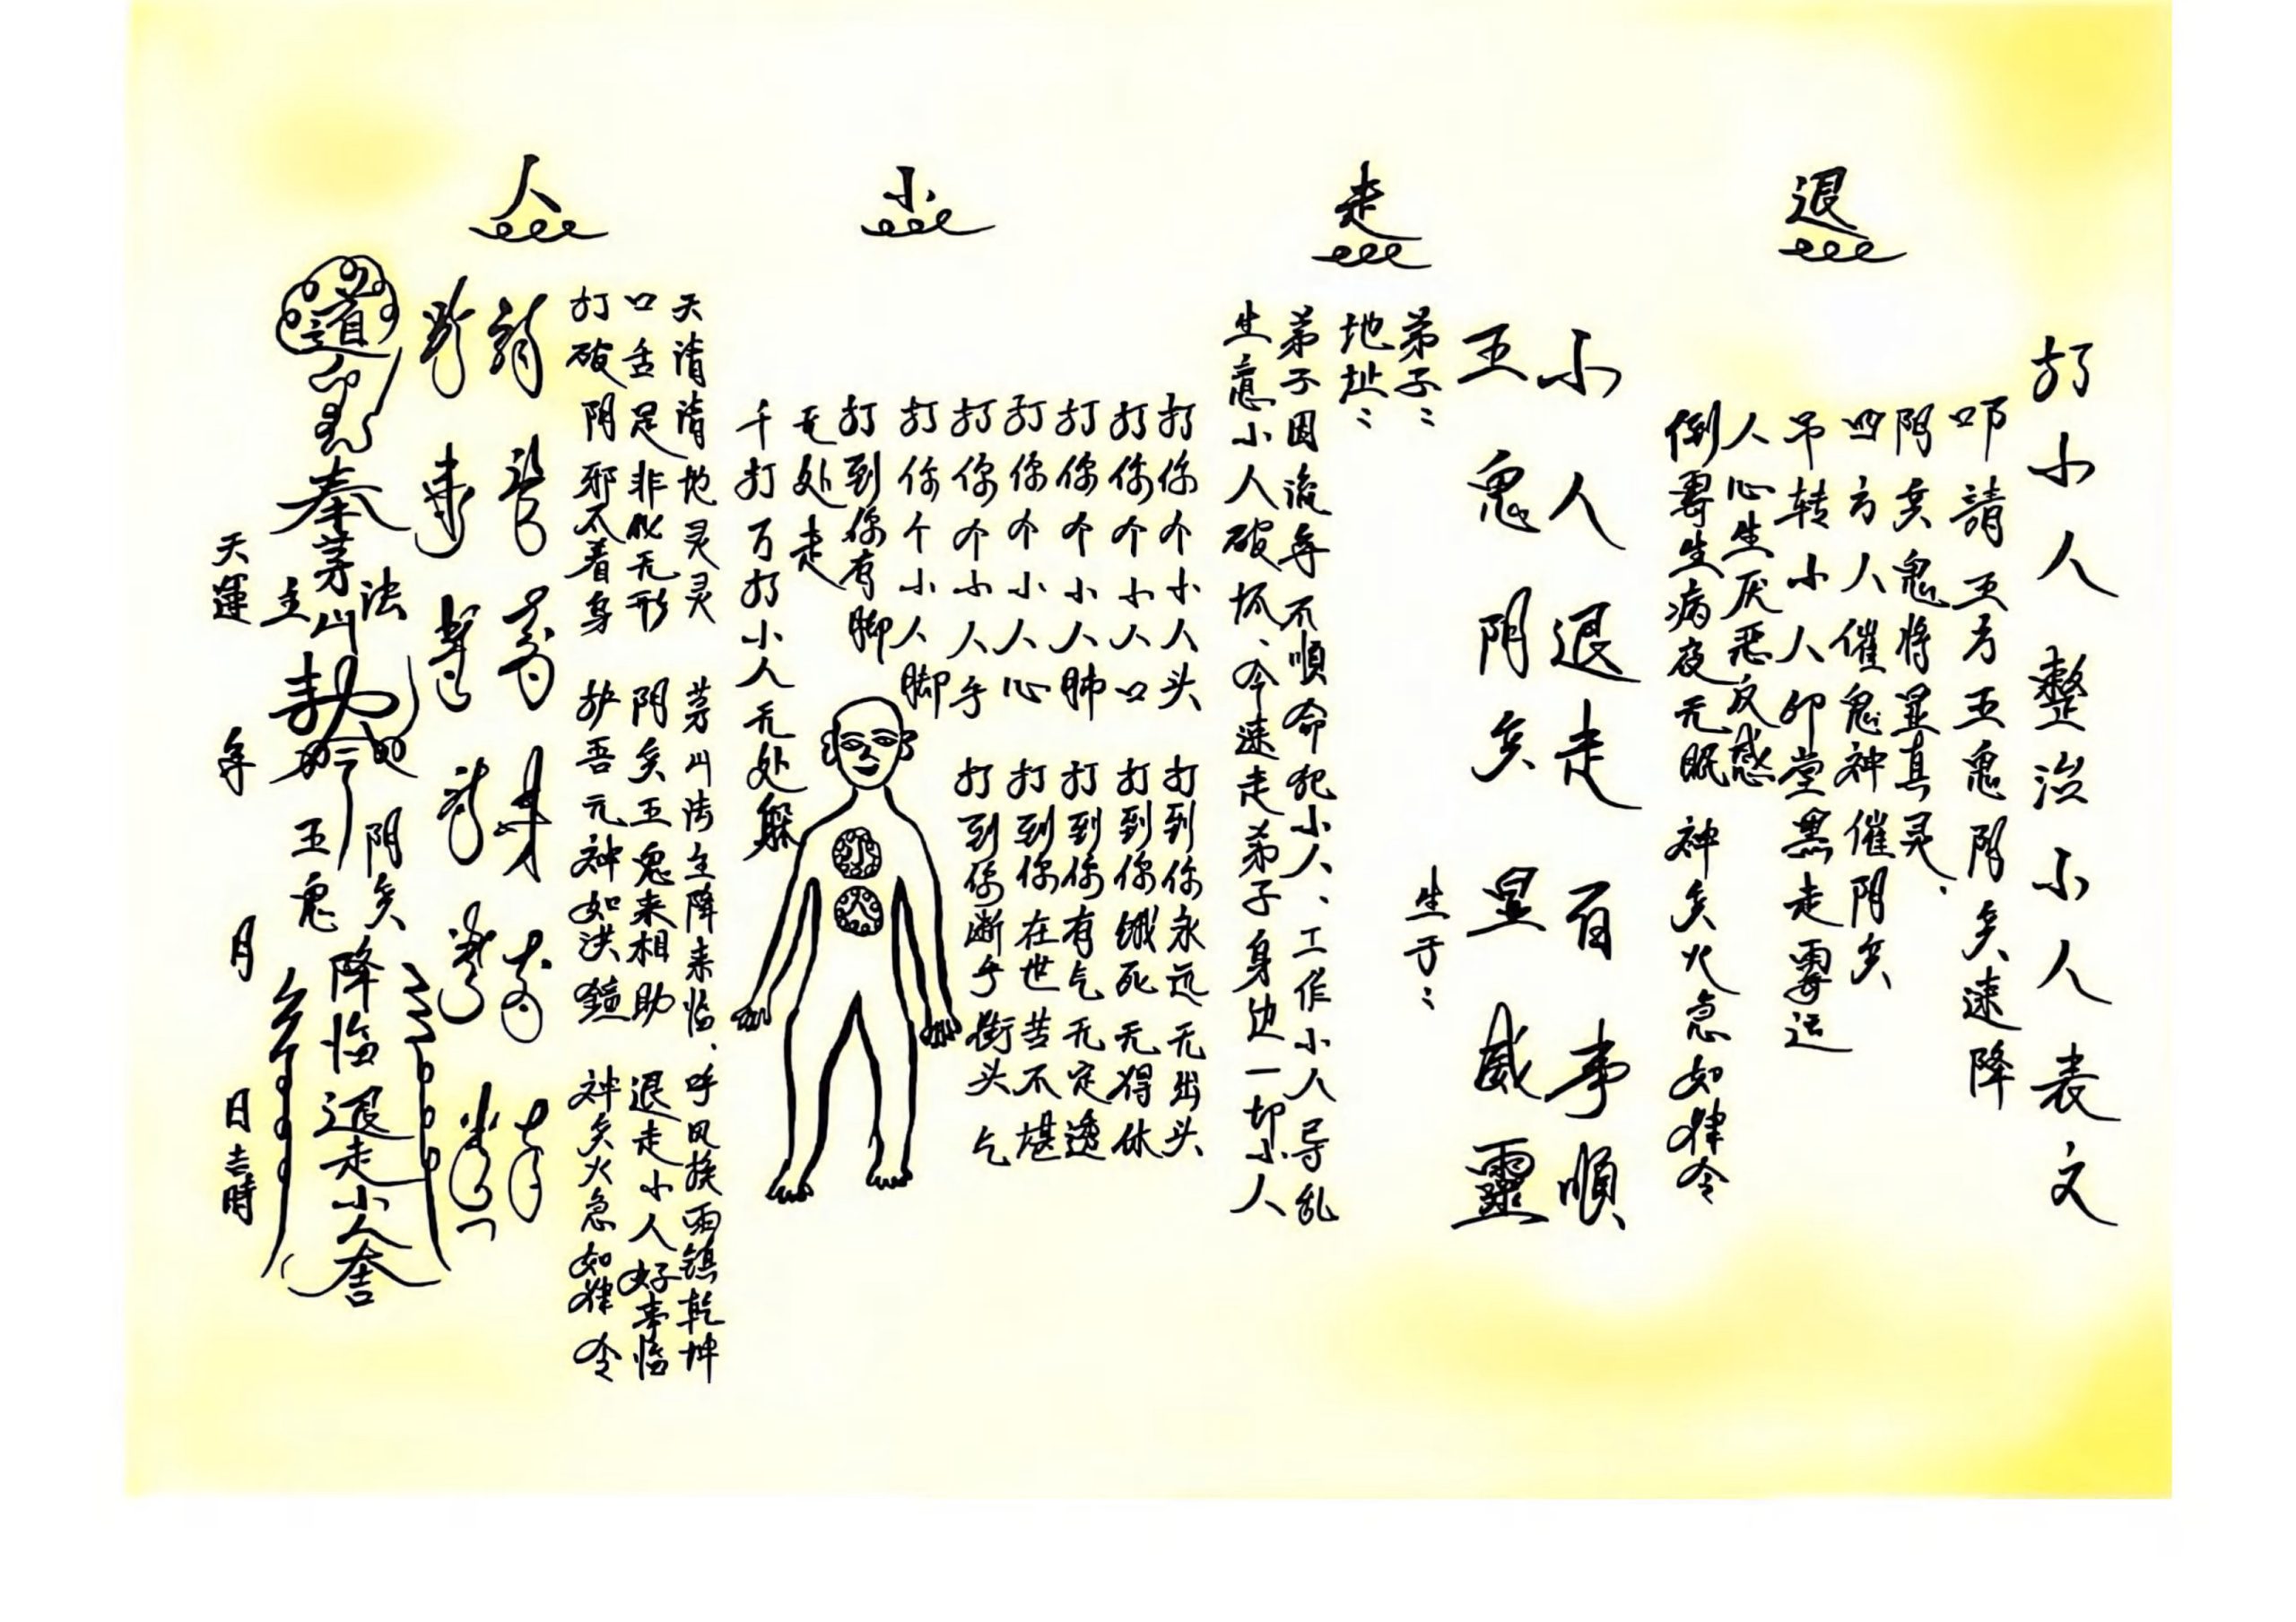 退走小人
打小人整治小人表文
叩請五方五鬼阴兵速降
阴兵鬼将显真灵、
四方人催鬼神催阴兵
吊转小人印堂黑走霉运
人心生厌恶反感
倒霉生病夜无眠 神兵火急如律令
小人退走百事順
五鬼阴兵显威靈
弟子： 生于：
地址：
弟子因流年不順命犯小人、工作小人导乱
生意小人破坏、今速走弟子身边一切小人
打你个小人头 打到你永远无出头
打你个小人口 打到你饿死无得休
打你个小人肺 打到你有气无定透
打你个小人心 打到你在世苦不堪
打你个小人手 打到你断手街头乞
打你个小人脚
打到你有脚
无处走
千打万打小人无处躲
小
人
天清清地灵灵 茅山法主降来临、呼风换雨镇乾坤
口舌足非似无形 阴兵五鬼来相助 退走小人好事临
打破阴邪不着身 护吾元神如洪鐘 神兵火急如律令
道
奉茅山法主
阴兵
五鬼
降临退走小人
天運 年 月 日吉時